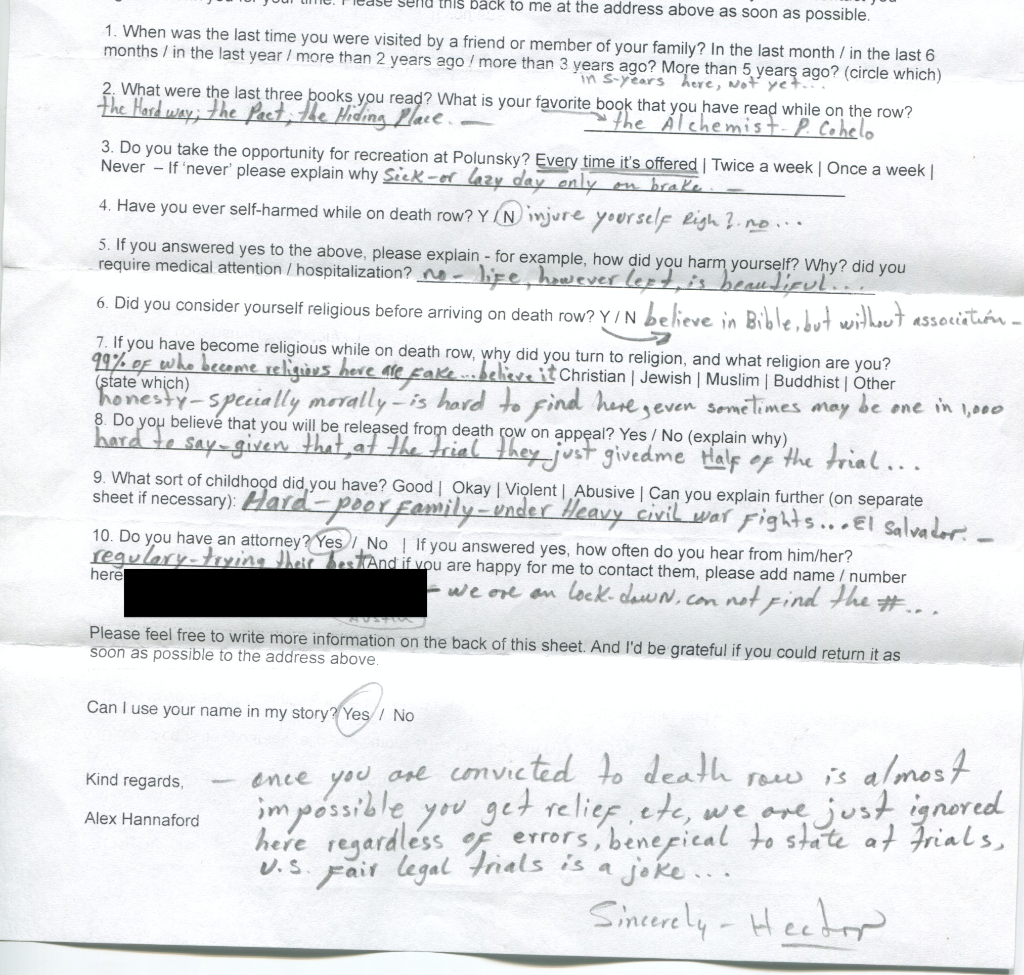 Please send this back to me at the address above as soon as possible.
1. When was the last time you were visited by a friend or member of your family? In the last month / in the last 6
months / in the last year / more than 2 years ago / more than 3 years ago? More than 5 years ago? (circle which)
in 5-years here, not yet...
2. What were the last three books you read? What is your favorite book that you have read while on the row?
the Hard way; the Pact; the Hiding Place. — the Alchemist - P. Cohelo
3. Do you take the opportunity for recreation at Polunsky? Every time it's offered | Twice a week | Once a week |
Never – If 'never' please explain why Sick-or lazy day only on brake. —
4. Have you ever self-harmed while on death row? Y / N injure yourself Righ? no...
5. If you answered yes to the above, please explain - for example, how did you harm yourself? Why? did you
require medical attention / hospitalization? no - life, however left, is beautiful...
6. Did you consider yourself religious before arriving on death row? Y / N believe in Bible, but without association -
7. If you have become religious while on death row, why did you turn to religion, and what religion are you?
99% of who become religious here are fake... believe it Christian | Jewish | Muslim | Buddhist | Other
(state which)
honesty - specially morally - is hard to find here, even sometimes may be one in 1,000
8. Do you believe that you will be released from death row on appeal? Yes / No (explain why)
hard to say - given that, at the trial they just gived me Half of the trial...
9. What sort of childhood did you have? Good | Okay | Violent | Abusive | Can you explain further (on separate
sheet if necessary): Hard - poor family - under Heavy civil war fights... El Salvador. —
10. Do you have an attorney? Yes / No | If you answered yes, how often do you hear from him/her?
regulary - trying their best And if you are happy for me to contact them, please add name / number
here - we are on lock-down, can not find the #...
Please feel free to write more information on the back of this sheet. And I'd be grateful if you could return it as
soon as possible to the address above.
Can I use your name in my story? Yes / No
Kind regards,
Alex Hannaford
— once you are convicted to death row is almost
impossible you get relief, etc, we are just ignored
here regardless of errors, benefical to state at trials,
U.S. Fair legal trials is a joke...
Sincerely - Hector